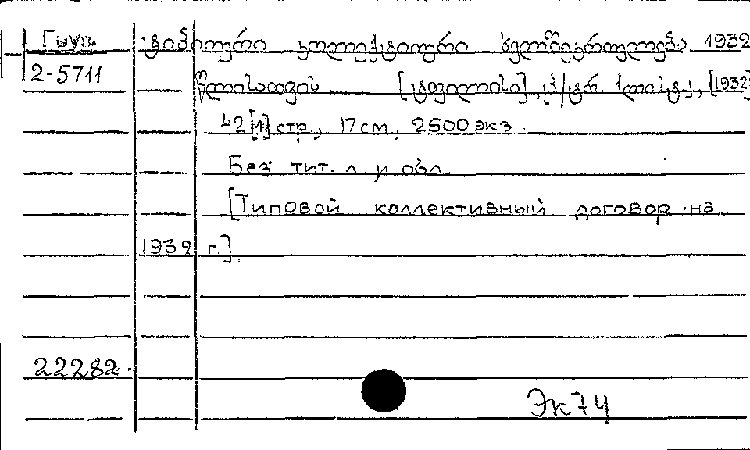 Груз.
ტიპიური კოლექტიური ხელშეკრულება 1932
2-5711
წლისათვის [ტფილისი], [1932]
42 [1] стр., 17 см. 2500 экз.
Без тит. л. и обл.
[Типовой коллективный договор на
1932 г.]
22282.
Эк74